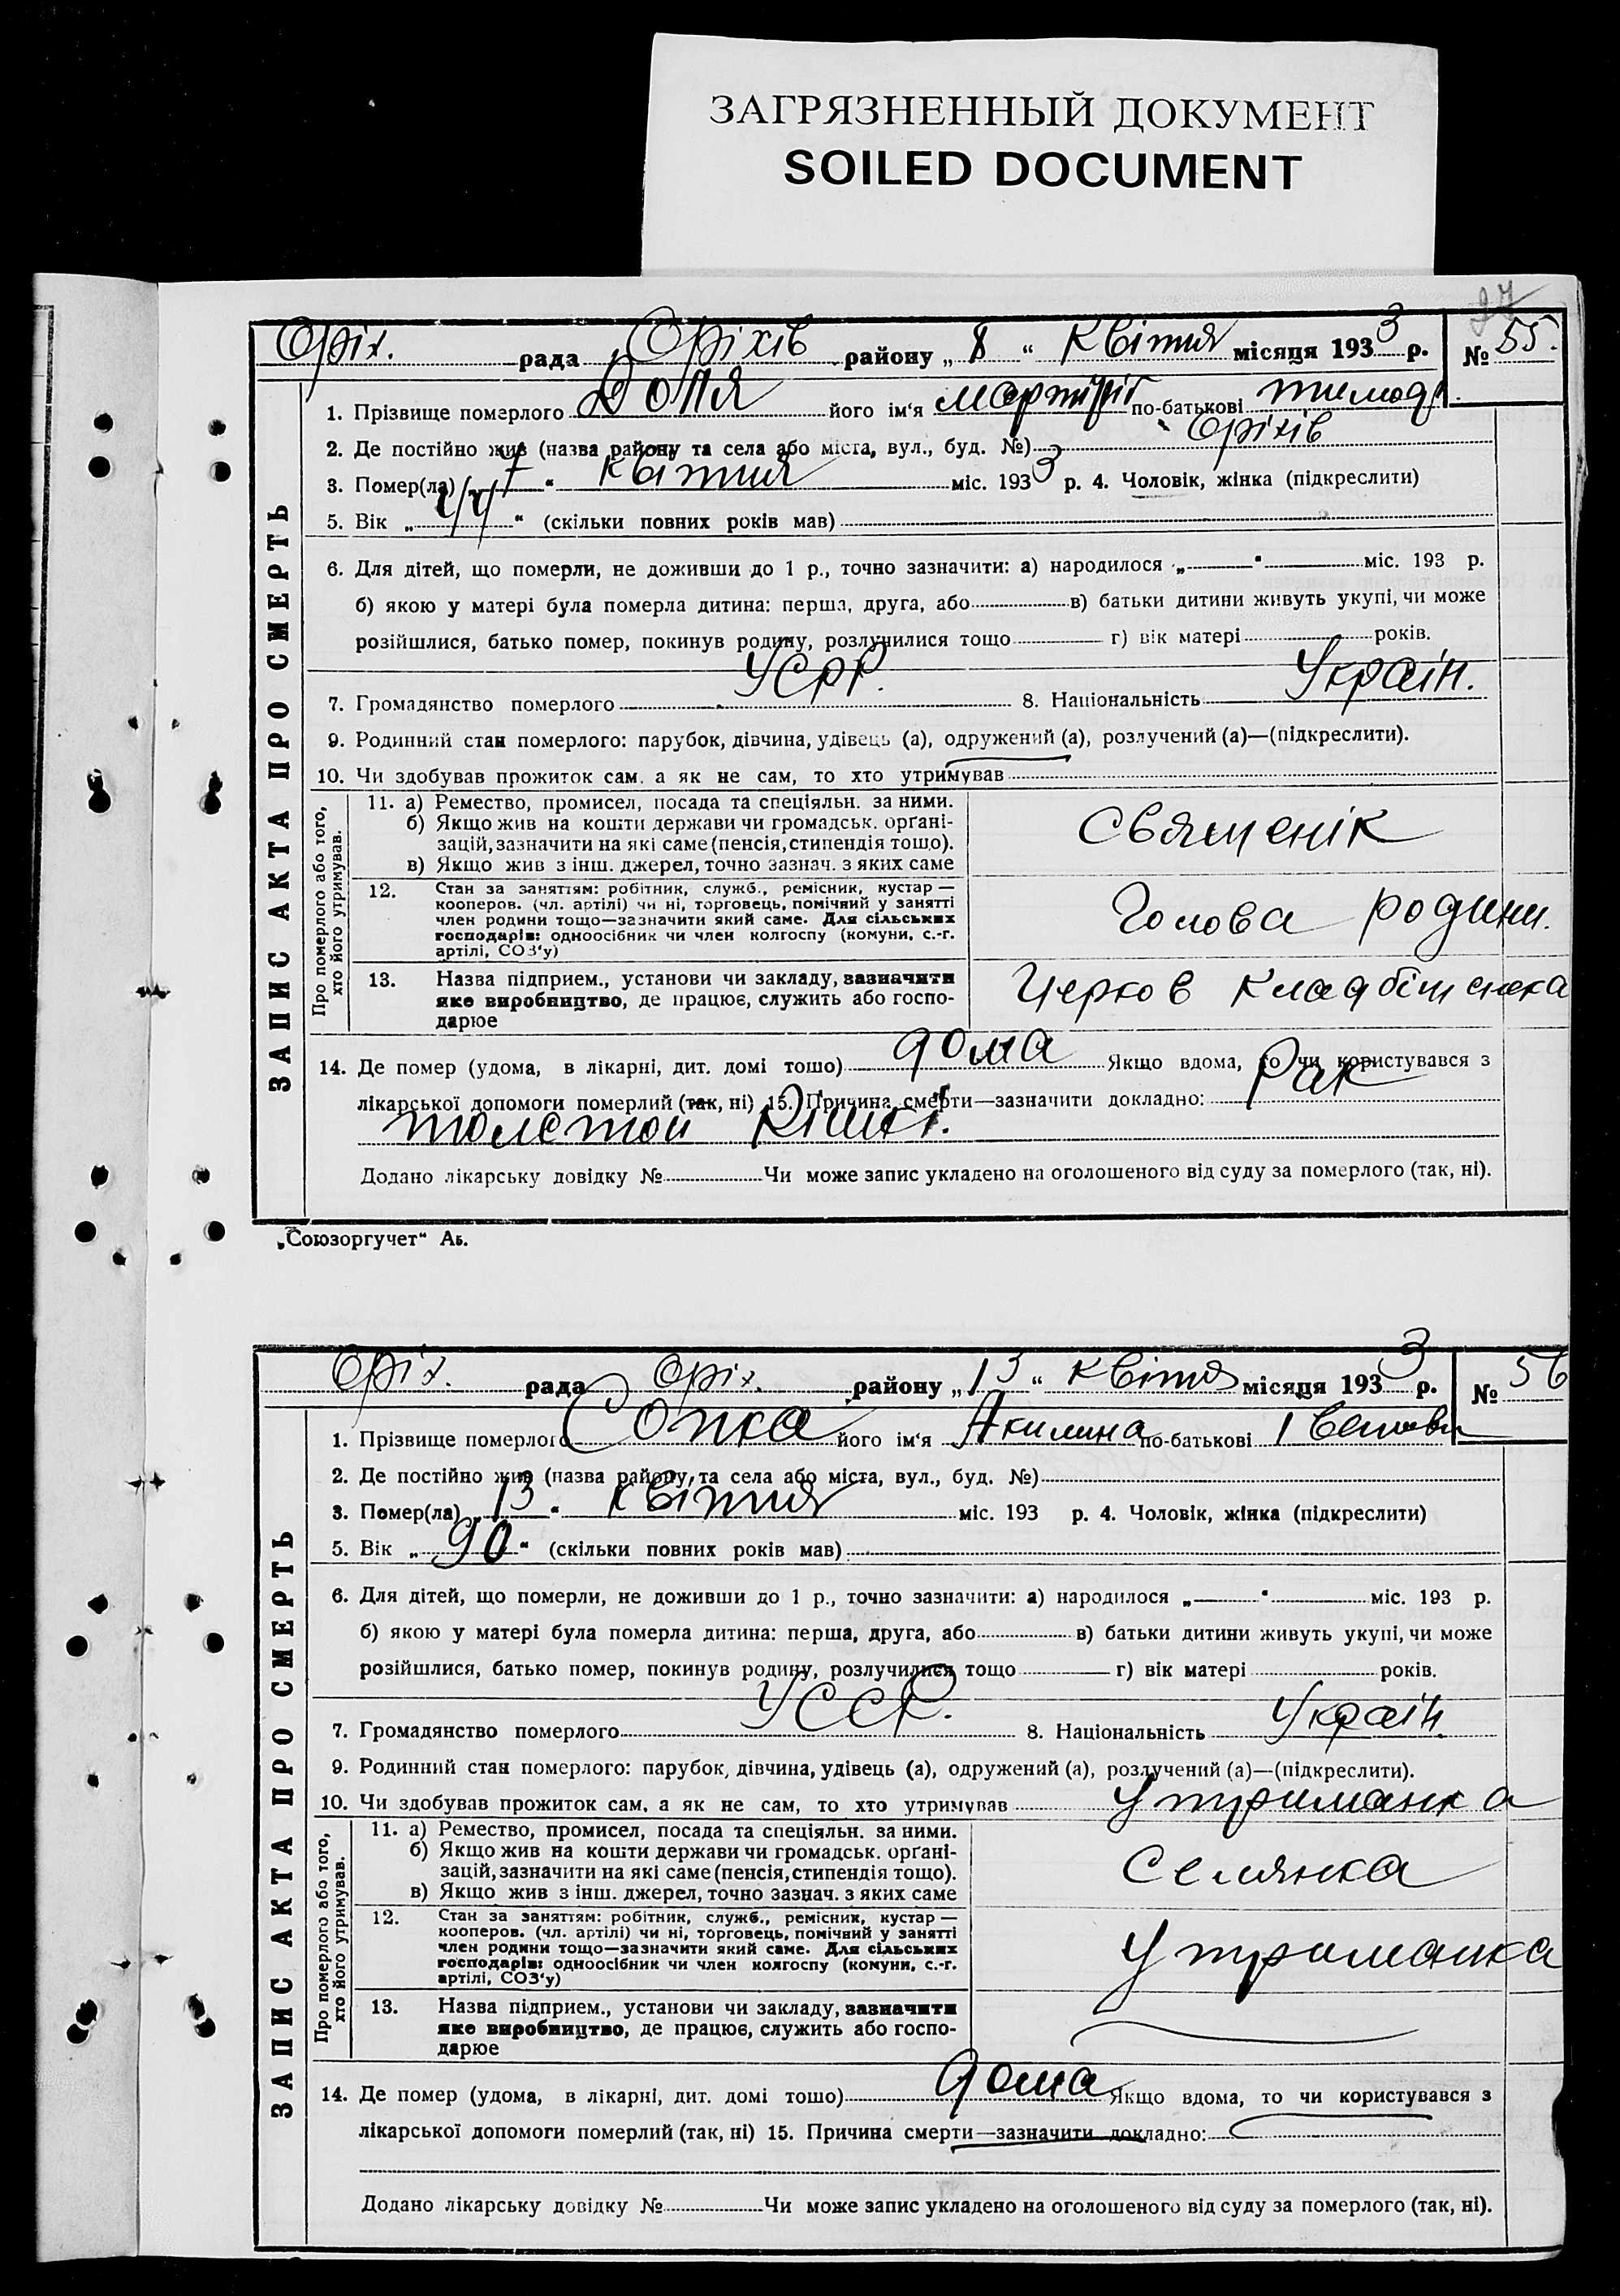 ЗАГРЯЗНЕННЫЙ ДОКУМЕНТ
SOILED DOCUMENT
Оріх. рада Оріхів району „ 8 “ Квітня місяця 1933 р. № 55.
1. Прізвище померлого Доля його ім'я по-батькові
2. Де постійно жив (назва району та села або міста, вул., буд. №) Оріхів
3. Помер(ла) „ 7 “ квітня міс. 1933 р. 4. Чоловік, жінка (підкреслити)
5. Вік „ 44 “ (скільки повних років мав)
6. Для дітей, що померли, не доживши до 1 р., точно зазначити: а) народилося „ “ міс. 193 р.
б) якою у матері була померла дитина: перша, друга, або в) батьки дитини живуть укупі, чи може
розійшлися, батько помер, покинув родину, розлучилися тощо г) вік матері років.
7. Громадянство померлого УСРР. 8. Національність Україн.
9. Родинний стан померлого: парубок, дівчина, удівець (а), одружений (а), розлучений (а)—(підкреслити).
10. Чи здобував прожиток сам, а як не сам, то хто утримував
ЗАПИС АКТА ПРО СМЕРТЬ
Про померлого або того, хто його утримував.
11. а) Ремество, промисел, посада та спеціяльн. за ними.
б) Якщо жив на кошти держави чи громадськ. орґані-
зацій, зазначити на які саме (пенсія, стипендія тощо).
в) Якщо жив з інш. джерел, точно зазнач. з яких саме
Священік
12. Стан за заняттям: робітник, служб., ремісник, кустар —
кооперов. (чл. артілі) чи ні, торговець, помічний у занятті
член родини тощо—зазначити який саме. Для сільських
господарів: одноосібник чи член колгоспу (комуни, с.-г.
артілі, СОЗ'у)
Голова родини.
13. Назва підприєм., установи чи закладу, зазначити
яке виробництво, де працює, служить або госпо-
дарює
Церков Кладбіщенска
14. Де помер (удома, в лікарні, дит. домі тощо) дома Якщо вдома, то чи користувався з
лікарської допомоги померлий (так, ні) 15. Причина смерти—зазначити докладно: Рак
толстой кішкі.
Додано лікарську довідку № Чи може запис укладено на оголошеного від суду за померлого (так, ні).
„Союзоргучет“ Аь.
Оріх. рада Оріх. району „ 13 “ Квітня місяця 1933 р. № 56
1. Прізвище померлого Сопка його ім'я Акилина по-батькові
2. Де постійно жив (назва району та села або міста, вул., буд. №)
3. Помер(ла) „ 13 “ квітня міс. 193 р. 4. Чоловік, жінка (підкреслити)
5. Вік „ 90 “ (скільки повних років мав)
6. Для дітей, що померли, не доживши до 1 р., точно зазначити: а) народилося „ “ міс. 193 р.
б) якою у матері була померла дитина: перша, друга, або в) батьки дитини живуть укупі, чи може
розійшлися, батько помер, покинув родину, розлучилися тощо г) вік матері років.
7. Громадянство померлого УССР. 8. Національність Україн.
9. Родинний стан померлого: парубок, дівчина, удівець (а), одружений (а), розлучений (а)—(підкреслити).
10. Чи здобував прожиток сам, а як не сам, то хто утримував Утриманка
ЗАПИС АКТА ПРО СМЕРТЬ
Про померлого або того, хто його утримував.
11. а) Ремество, промисел, посада та спеціяльн. за ними.
б) Якщо жив на кошти держави чи громадськ. орґані-
зацій, зазначити на які саме (пенсія, стипендія тощо).
в) Якщо жив з інш. джерел, точно зазнач. з яких саме
Селянка
12. Стан за заняттям: робітник, служб., ремісник, кустар —
кооперов. (чл. артілі) чи ні, торговець, помічний у занятті
член родини тощо—зазначити який саме. Для сільських
господарів: одноосібник чи член колгоспу (комуни, с.-г.
артілі, СОЗ'у)
Утриманка
13. Назва підприєм., установи чи закладу, зазначити
яке виробництво, де працює, служить або госпо-
дарює
14. Де помер (удома, в лікарні, дит. домі тощо) дома Якщо вдома, то чи користувався з
лікарської допомоги померлий (так, ні) 15. Причина смерти—зазначити докладно:
Додано лікарську довідку № Чи може запис укладено на оголошеного від суду за померлого (так, ні).